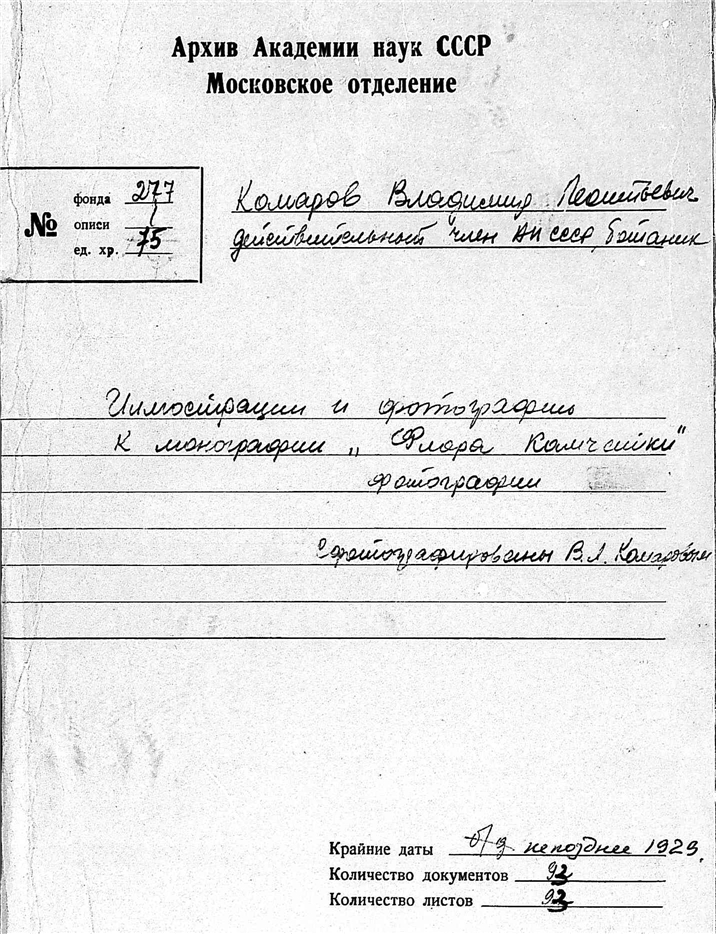 Архив Академии наук СССР
Московское отделение
№
фонда 277
описи 1
ед. хр. 75
Комаров Владимир Леонтьевич
действительный член АН СССР, ботаник
Иллюстрации и фотографии
к монографии „Флора Камчатки"
фотографии
Сфотографированы В.Л. Комаровым
Крайние даты б/д не позднее 1929.
Количество документов 92
Количество листов 92